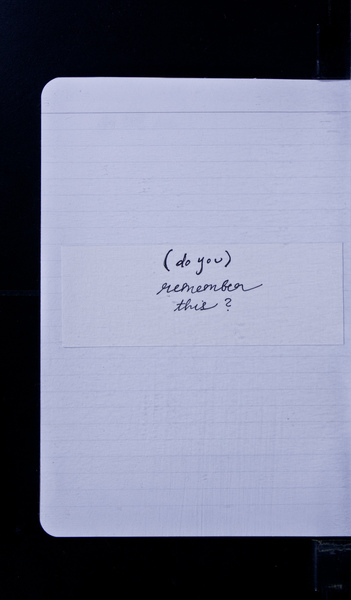 (do you)
remember
this?